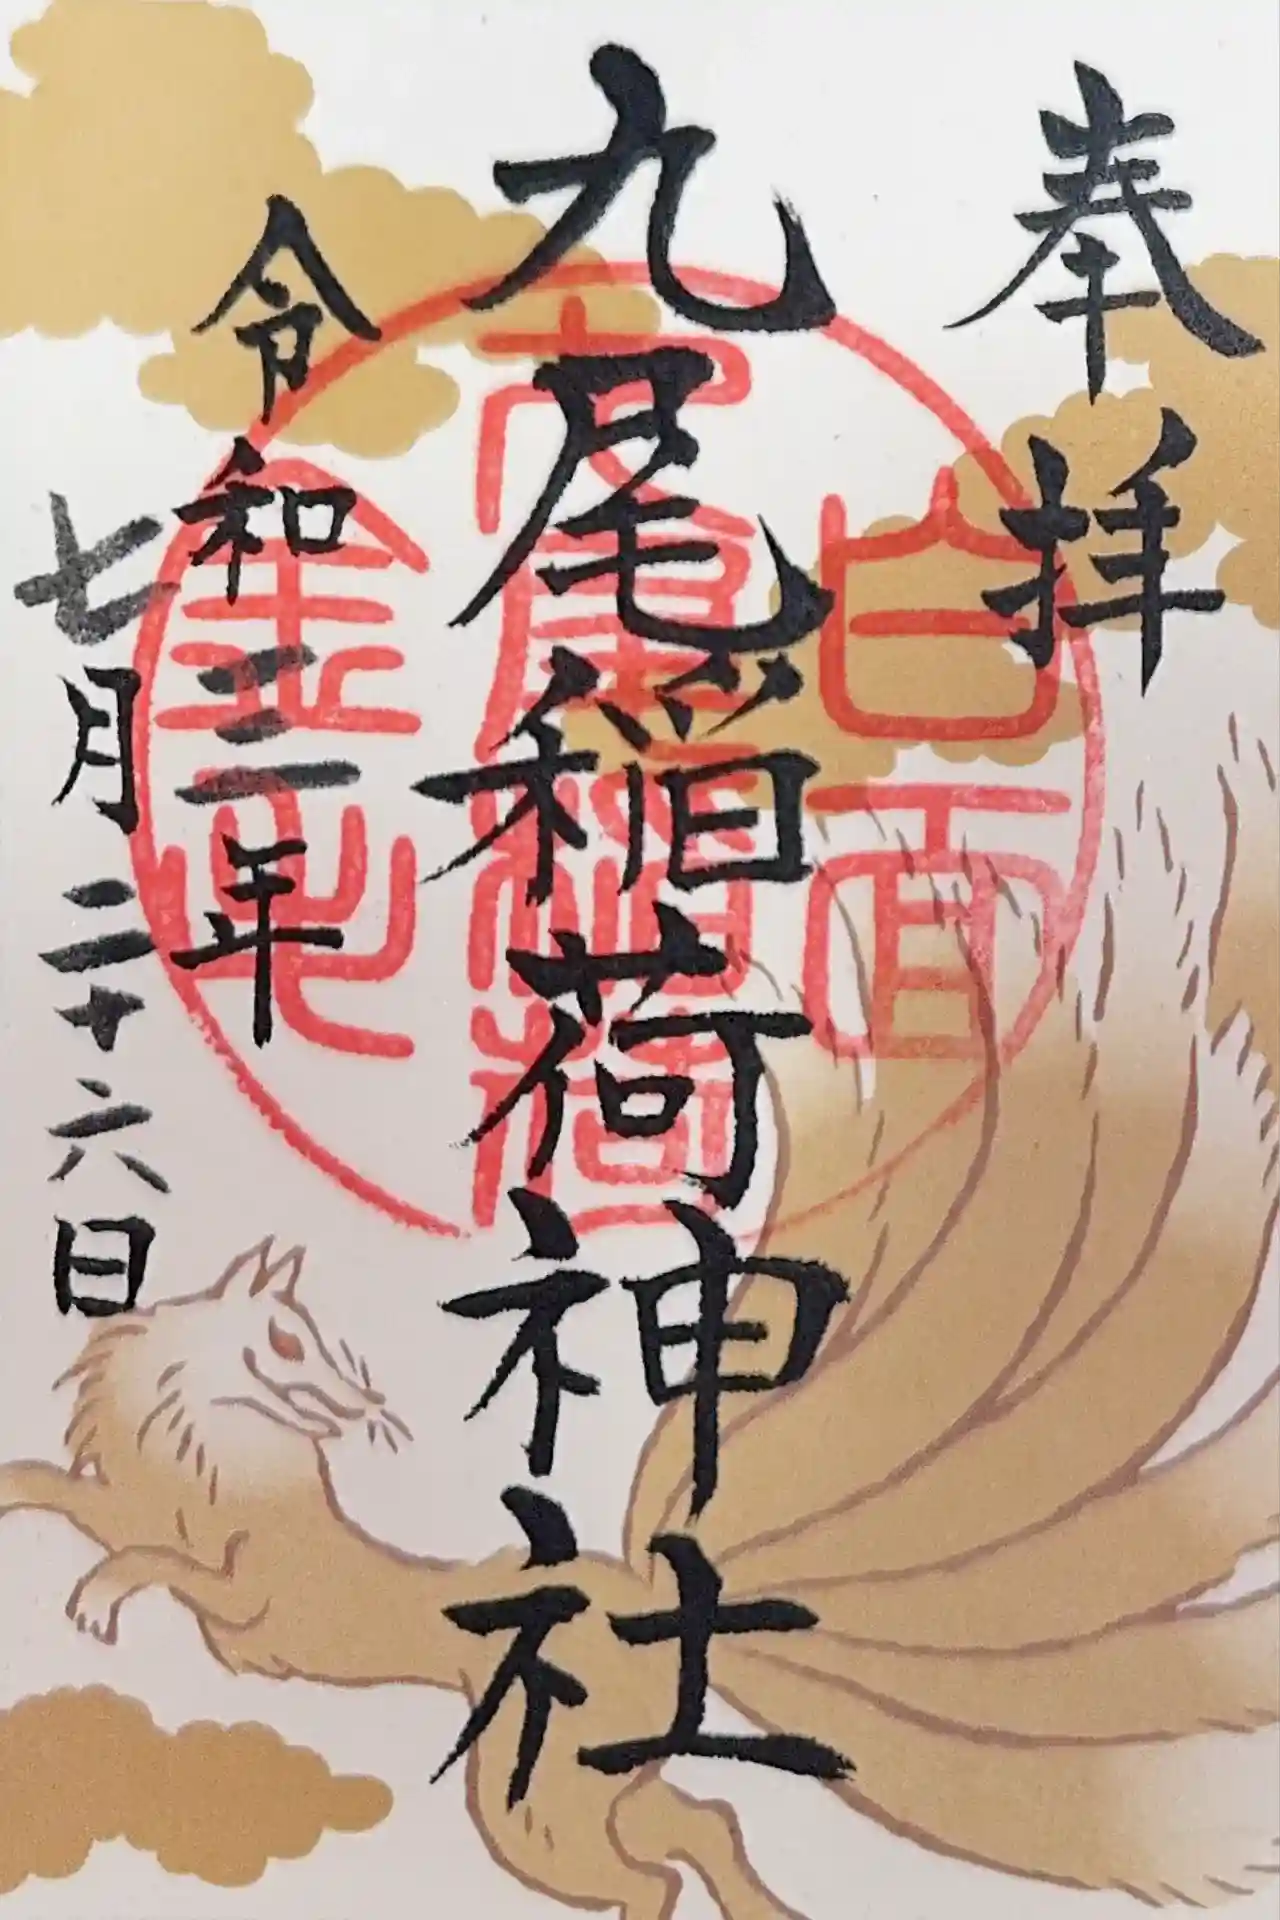 奉拝
九尾稲荷神社
令和三年
七月二十六日
白面
稲荷
金毛